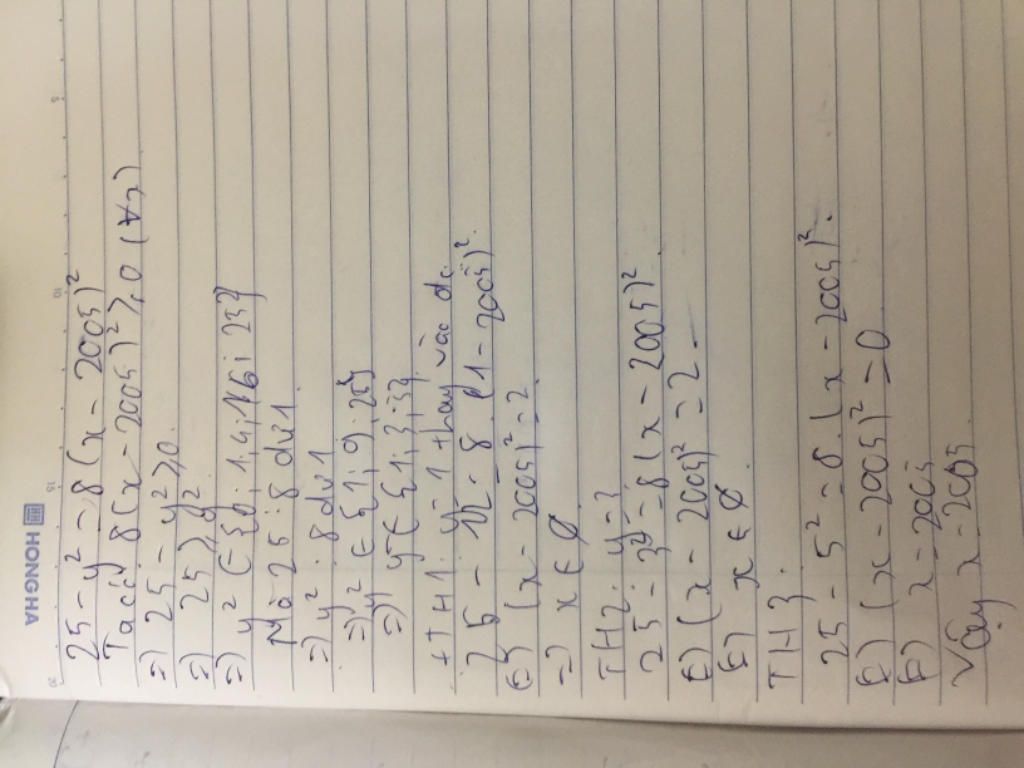 HONGHA
25 - y² = 8(x - 2005)²
Ta có 8(x - 2005)² ≥ 0 (∀x)
=) 25 - y² ≥ 0
=) 25 ≥ y²
=) y² ∈ {0; 1; 4; 16; 25}
Mà 25 : 8 dư 1
=) y² : 8 dư 1
=) y² ∈ {1; 9; 25}
=) y ∈ {1; 3;
+ TH1: y = 1 thay vào dc
25 - 1² = 8 (1 - 2005)².
(=) (x - 2005)² = 2
=) x ∈ ∅
TH2: y = 3
25 - 3² = 8 (x - 2005)²
(=) (x - 2005)² = 2
(=) x ∈ ∅
TH3
25 - 5² = 8. (x - 2005)².
(=) (x - 2005)² = 0
(=) x = 2005
Vậy x = 2005
5
10
15
20